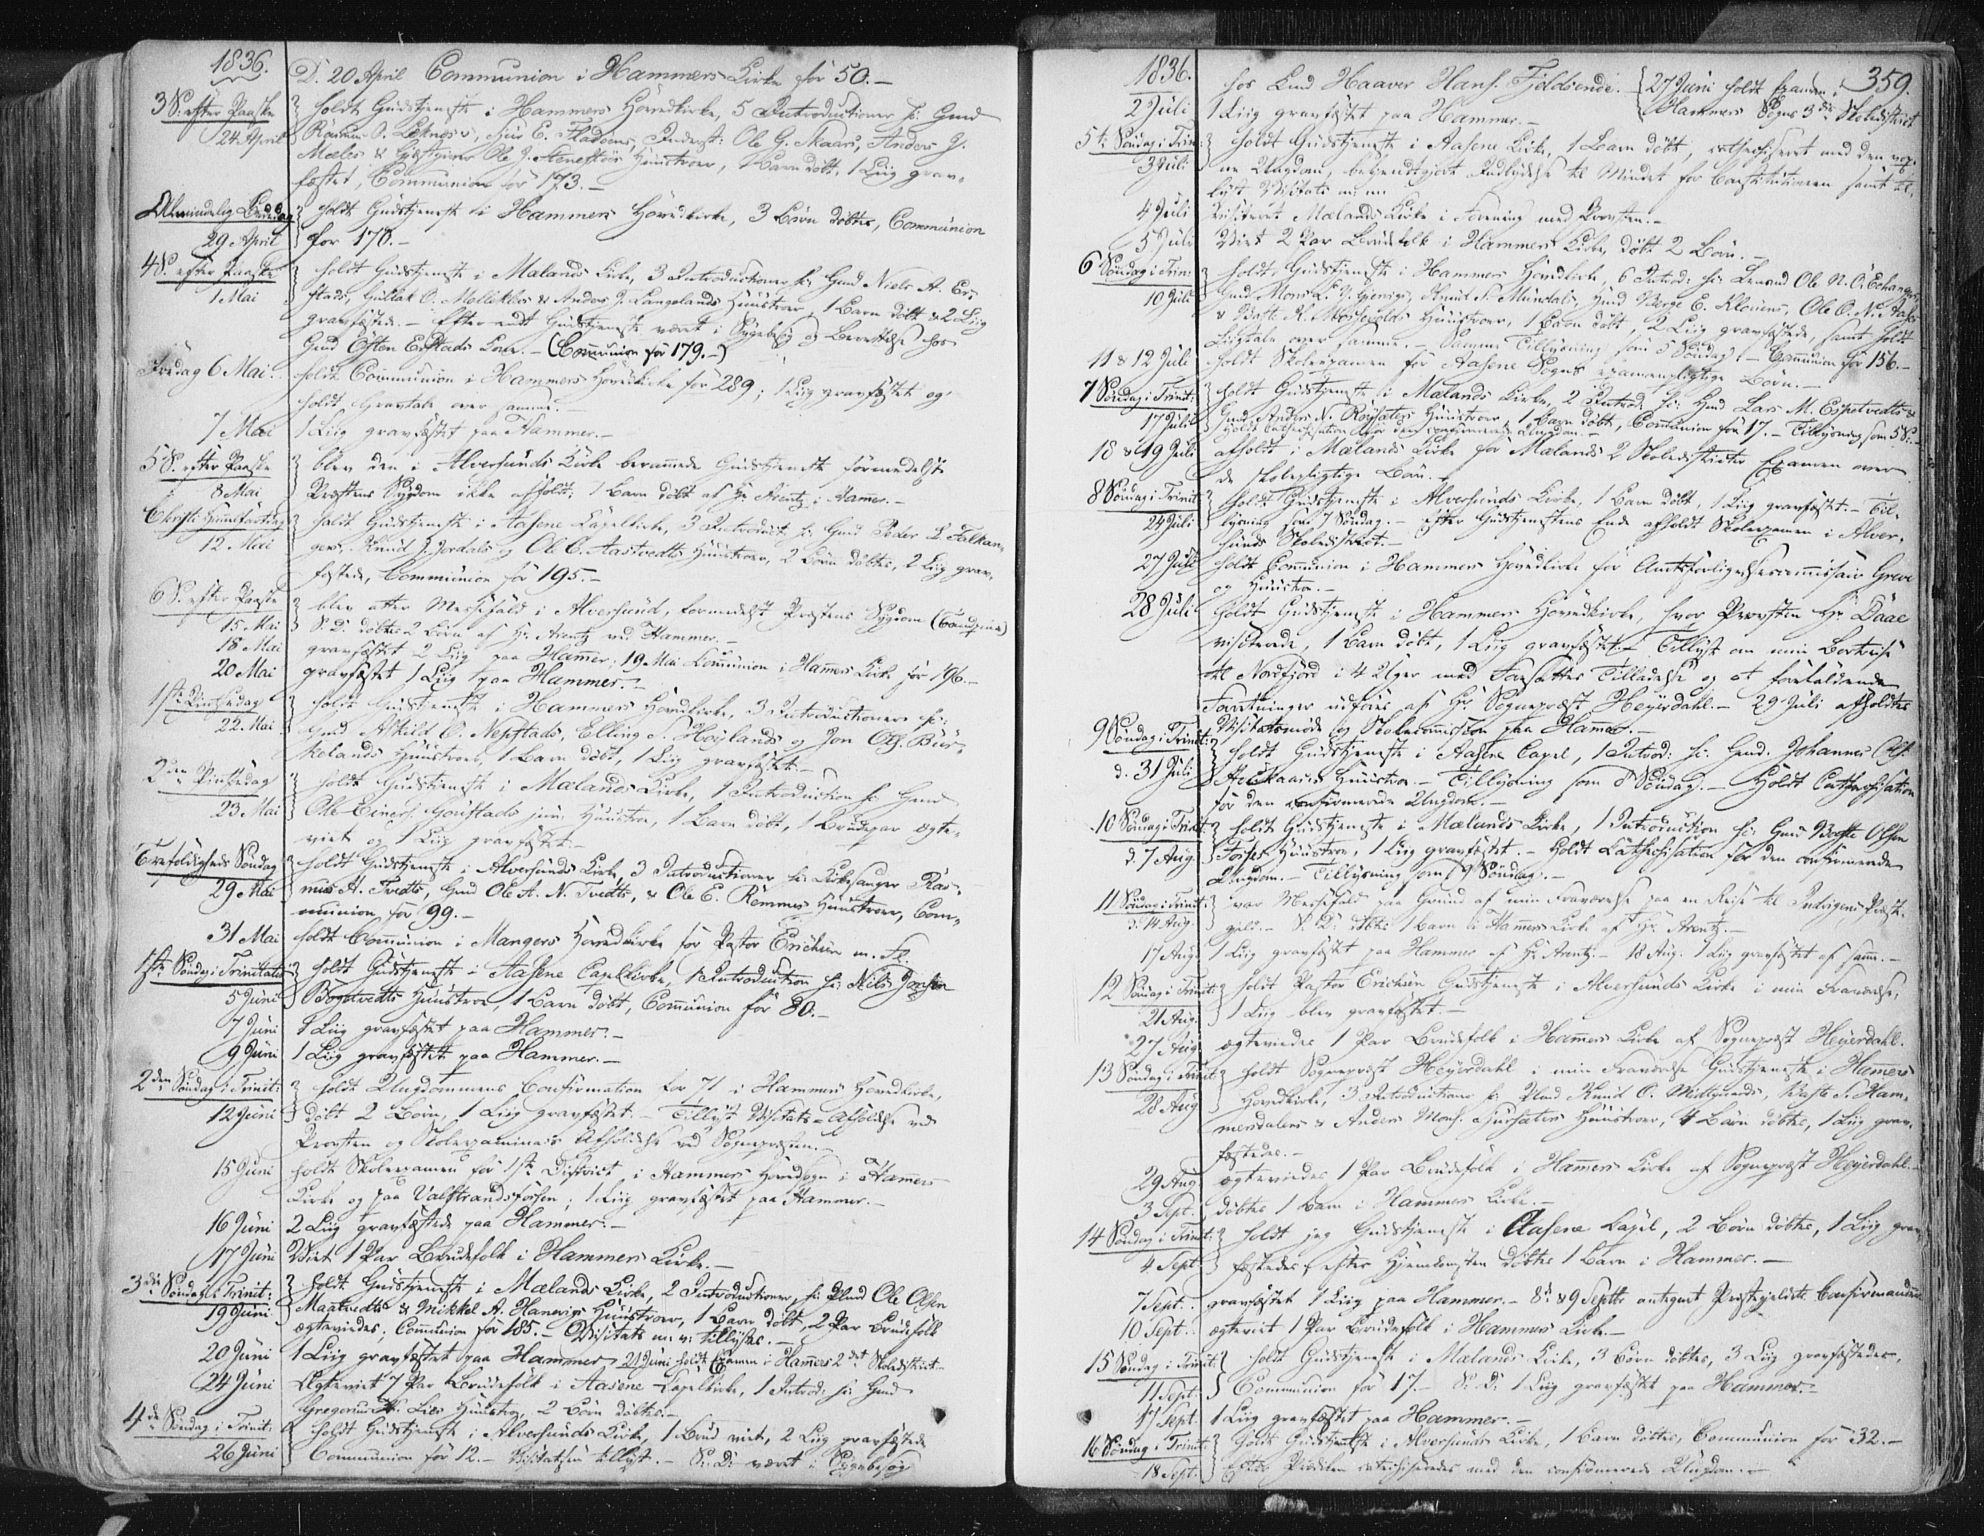 1836.
D. 20 April Communion i Hammers Kirke for 50.—
3 S. efter Paaske
24 April
holdt Gudstjeneste i Hammers Hovedkirke, 5 Introductioner
Anders J.
Huustroer, 1 Barn döbt, 1 Liig grav-
fæstet, Communion for 173.—
Almindelig Bededag
29 April
holdt Gudstjeneste i Hammers Hovedkirke, 3 Börn döbte, Communion
for 170.—
4 S. efter Paaske
1 Mai
holdt Gudstjeneste i Mælands Kirke, 3 Introductioner fr. Gmd Niels A. Er-
stads, O. & Anders Langelands Huustroer, 1 Barn döbt & 2 Liig
gravfæstede.— Efter endt Gudstjeneste været i Sygebesøg hos
Gmd Kone.— (Communion for 179.—)
Fredag 6 Mai
holdt Communion i Hammers Hovedkirke for 289; 1 Liig gravfæstet og
holdt Gravtale over samme.—
7 Mai
1 Liig gravfæstet paa Hammer.—
5 S. efter Paaske
8 Mai
blev den i Alversunds Kirke berammede Gudstjeneste formedelst
Præstens Sygdom ikke afholdt; 1 Barn döbt af Hr Arentz i Hamer.—
Christi Himmelfartsdag
12 Mai
holdt Gudstjeneste i Aasene Capelkirke, 3 Introduct. fr. Gmd Peder L. Falkan-
gers, Knud J. Jordals og Ole O. Aastvedts Huustroer, 2 Börn döbte, 2 Liig grav-
fæstede, Communion for 195.—
6 S. efter Paaske
15 Mai
blev atter Messefald i Alversund, formedelst Præstens Sygdom
S. D. döbtes 2 Börn af Hr Arentz ved Hammer.—
18 Mai
gravfæstet 2 Liig paa Hammer; 19 Mai Communion i Hamers Kirke for 196.—
20 Mai
gravfæstet 1 Liig paa Hammer.—
1ste Pintsedag
22. Mai
holdt Gudstjeneste i Hammers Hovedkirke, 3 Introductioner fr.
Gmd Askild O. Nepstads, Elling S. Höylands og Jon Ols. Bur-
kelands Huustroer, 1 Barn döbt, 1 Liig gravfæstet.—
2den Pintsedag
23 Mai
holdt Gudstjeneste i Mælands Kirke, 1 Introduction fr. Gmd
Ole Einers. Huustroe, 1 Barn döbt, 1 Brudepar ægte-
viet og 1 Liig gravfæstet.—
Trefoldigheds Söndag
29 Mai
holdt Gudstjeneste i Alversunds Kirke, 3 Introductioner fr. Kirkesanger Ras-
mus A. Tvedts, Gmd Ole A. N. Tvedts, & Ole E. Remmes Huustroer, Com-
munion for 99.—
31 Mai
holdt Communion i Mangers Hovedkirke for Pastor Erichsen m. Fl.
1ste Söndag i Trinitatis
5 Juni
holdt Gudstjeneste i Aasene Capelkirke, 1 Introduction fr. Nils Jonsen
Huustroe, 1 Barn döbt, Communion for 80.—
7 Juni
1 Liig gravfæstet paa Hammer.—
9 Juni
1 Liig gravfæstet paa Hammer.—
2den Söndag i Trinit:
12 Juni
holdt Ungdommens Confirmation for 71 i Hammers Hovedkirke,
döbt 2 Börn, 1 Liig gravfæstet.— Tillyst Visitats-Afholdelse ved
Provsten og Skoleexaminers Afholdelse ved Sognepræsten.—
15 Juni
holdt Skoleexamen for 1ste District i Hammers Hovedsogn i Hammers
Kirke og paa Valestrandsfossen; 1 Liig gravfæstet paa Hammer.—
16 Juni
2 Liig gravfæstede paa Hammer.—
17 Juni
Viet 1 Par Brudefolk i Hammers Kirke.—
3die Söndag i Trinit:
19 Juni
holdt Gudstjeneste i Mælands Kirke, 2 Introductioner, fr. Ole Olsen
& Mikkel A. Hanevigs Huustroer, 1 Barn döbt, 2 Par Brudefolk
ægteviedes; Communion for 185.— Visitats m. v. tillystes.—
20 Juni
1 Liig gravfæstet paa Hammer, 21 Juni holdt Examen i Hamers 2det Skoledistrict.—
24 Juni
Ægteviet 7 Par Brudefolk i Aasene Capelkirke, 1 Introd: fr. Gmd
Gregorius Huustroe, 2 Börn döbte.—
4de Söndag i Trinit:
26 Juni
holdt Gudstjeneste i Alversunds Kirke, 1 Brud viet, 2 Liig gravfæstede
Communion for 12.— Visitatsen tillyst.— S. D. været i Sygebesög
359.
1836.
hos Haaver Hans. Fjeldsende. 27 Juni holdt Examen i
Hammers Sogns 3die Skoledistrict
2 Juli
1 Liig gravfæstet paa Hammer.—
5te Söndag i Trin:
3 Juli
holdt Gudstjeneste i Aasene Kirke, 1 Barn döbt, catechiseret med den
Ungdom, bekjendtgjort Indbydelse til Mindet for Constitutionen samt til-
lyst Visitats m. m.
4 Juli
Visiteret Mælands Kirke i Forening med Provsten.—
5 Juli
Viet 2 Par Brudefolk i Hammers Kirke, döbt 2 Börn.—
6 Söndag i Trin:
10 Juli
holdt Gudstjeneste i Hammers Hovedkirke, 6 Introd: fr.
Knud S. Mundals,
Huustroer, 1 Barn döbt, 2 Liig gravfæstede, samt holdt
Liigtale over samme.— Samme Tillysning som 5 Söndag.— Communion for 156.—
11 & 12 Juli
holdt Skoleexamen for Aasene Sogns examenspligtige Börn.—
7 Söndag i Trinit:
17 Juli
holdt Gudstjeneste i Mælands Kirke, 2 Introd. fr. Gmd Lars M. Espetvedts &
Gmd Anders N. Huustroer, 1 Barn döbt, Communion for 17.— Tillysning som 5 S.—
holdt Catechisation for den confirmerede Ungdom.—
18 & 19 Juli
afholdt i Mælands Kirke for Mælands 2 Skoledistricter Examen over
de skolepligtige Börn.—
8 Söndag i Trinit
24 Juli
holdt Gudstjeneste i Alversunds Kirke, 1 Barn döbt, 1 Liig gravfæstet.— Til-
lysning som 7 Söndag.— Efter Gudstjenestens Ende afholdt Skoleexamen i Alver-
sunds Skoledistrict.—
27 Juli
holdt Communion i Hammers Hovedkirke for Amtsforligelsescommissair Greve
og Huustroe.—
28 Juli
holdt Gudstjeneste i Hammers Hovedkirke, hvor Provsten Hr. Daae
visiterede, 1 Barn döbt, 1 Liig gravfæstet.— Tillyst om min Bortreise
til Nordfjord i 4 Uger med Foresattes Tilladelse og at forefaldende
Forretninger udføres af Hr Sognepræst Heyerdahl.— 29 Juli afholdtes
Visitatsmøde og Skolecommission paa Hamer.—
9 Söndag i Trinit:
d. 31 Juli
holdt Gudstjeneste i Aasene Capel, 1 Introd: fr. Gmd. Johannes Ols.
Huustroe.— Tillysning som 8 Söndag.— Holdt Catechisation
for den confirmerede Ungdom.—
10 Söndag i Trinit:
d. 7 Aug.
holdt Gudstjeneste i Mælands Kirke, 1 Introduction fr. Gmd Olsen
Huustroe, 1 Liig gravfæstet.— Holdt Catechisation for den confirmerede
Ungdom.— Tillysning som 9 Söndag.—
11 Söndag i Trinit:
d. 14 Aug.
var Messefald paa Grund af min Fraværelse paa en Reise til Indvigens Præste-
gield.— S. D. döbt 1 Barn i Hamers Kirke af Hr. Arentz.—
17 Aug.
1 Liig gravfæstet paa Hammer af Hr Arentz.— 18 Aug. 1 Liig gravfæstet af samme.—
12 Söndag i Trinit:
21 Aug.
holdt Pastor Erichsen Gudstjeneste i Alversunds Kirke i min Fraværelse;
1 Liig blev gravfæstet.—
27 Aug.
ægteviedes 1 Par Brudefolk i Hamers Kirke af Sognepræst Heyerdahl.
13 Söndag i Trinit
28 Aug
holdt Sognepræst Heyerdahl i min Fraværelse Gudstjeneste i Hamers
Hovedkirke, 3 Introductioner fr. Knud O. S. Ham-
mersdalens & Anders Mons. Huustroer, 4 Börn döbtes, 1 Liig grav-
fæstedes.—
29 Aug.
ægteviedes 1 Par Brudefolk i Hamers Kirke af Sognepræst Heyerdahl.—
3 Sept.
döbtes 1 Barn i Hammers Kirke.—
14 Söndag i Trinit:
4 Sept.
holdt jeg Gudstjeneste i Aasene Capel, 2 Börn döbtes, 1 Liig grav-
fæstedes, efter Hjemkomsten döbtes 1 Barn i Hammer.—
7 Sept.
gravfæstet 1 Liig paa Hammer.— 8de & 9 Septbr antegnet Præstegjeldets Confirmander
10 Sept.
ægteviet 1 Par Brudefolk i Hammers Kirke.—
15 Söndag i Trinit:
11 Sept.
holdt Gudstjeneste i Mælands Kirke, 3 Börn döbtes, 3 Liig gravfæstedes,
Communion for 17.— S. D. 1 Liig gravfæstet paa Hammer.—
17 Sept.
1 Liig gravfæstet paa Hammer.—
16 Söndag i Trinit:
18 Sept.
Holdt Gudstjeneste i Alversunds Kirke, 1 Barn döbtes, Communion for 32.—
Efter Prædiken catechiseredes med den confirmerede Ungdom.—